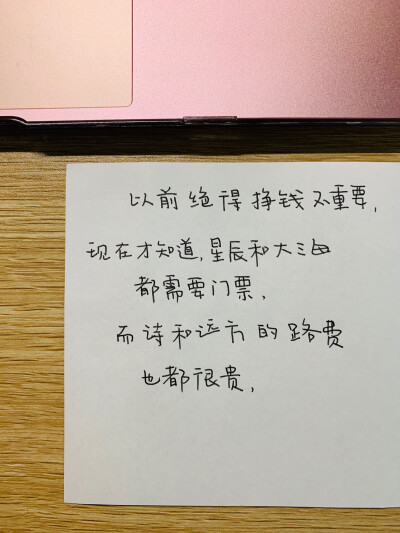 以前绝得挣钱不重要,
现在才知道,星辰和大海
都需要门票,
而诗和远方的路费
也都很贵,